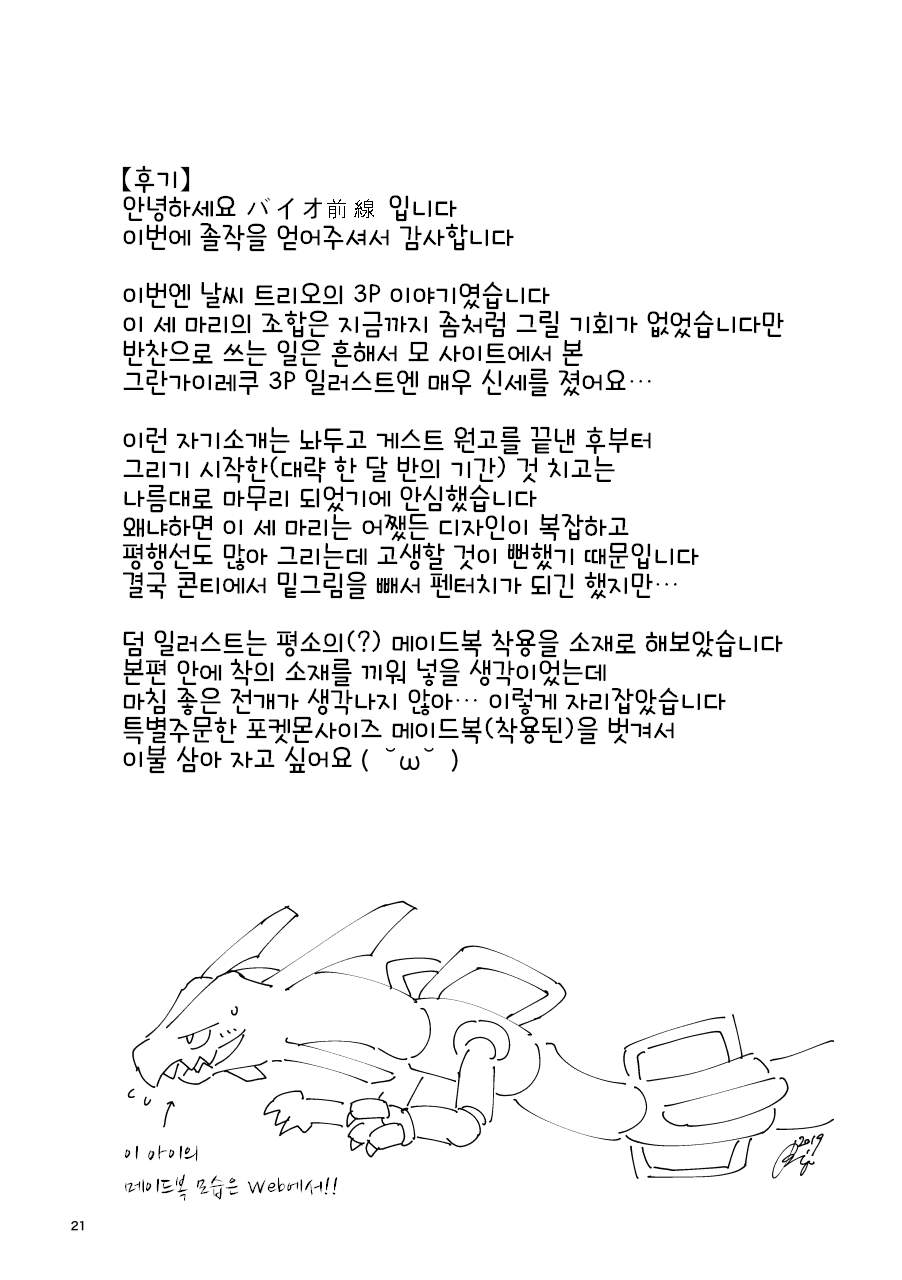 【후기】
안녕하세요 バイオ前線 입니다
이번에 졸작을 얻어주셔서 감사합니다
이번엔 날씨 트리오의 3P 이야기였습니다
이 세 마리의 조합은 지금까지 좀처럼 그릴 기회가 없었습니다만
반찬으로 쓰는 일은 흔해서 모 사이트에서 본
그란가이레쿠 3P 일러스트엔 매우 신세를 졌어요…
이런 자기소개는 놔두고 게스트 원고를 끝낸 후부터
그리기 시작한(대략 한 달 반의 기간) 것 치고는
나름대로 마무리 되었기에 안심했습니다
왜냐하면 이 세 마리는 어쨌든 디자인이 복잡하고
평행선도 많아 그리는데 고생할 것이 뻔했기 때문입니다
결국 콘티에서 밑그림을 빼서 펜터치가 되긴 했지만…
덤 일러스트는 평소의(?) 메이드복 착용을 소재로 해보았습니다
본편 안에 착의 소재를 끼워 넣을 생각이었는데
마침 좋은 전개가 생각나지 않아… 이렇게 자리잡았습니다
특별주문한 포켓몬사이즈 메이드복(착용된)을 벗겨서
이불 삼아 자고 싶어요 ( ˘ω˘ )
이 아이의
메이드복 모습은 Web에서!!
2019
21